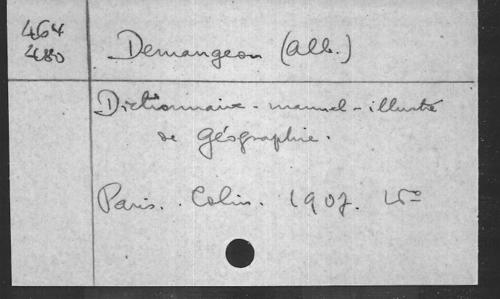 464
480
Demangeon (Alb.)
Dictionnaire-manuel-illustré
de Géographie.
Paris. Colin. 1907.